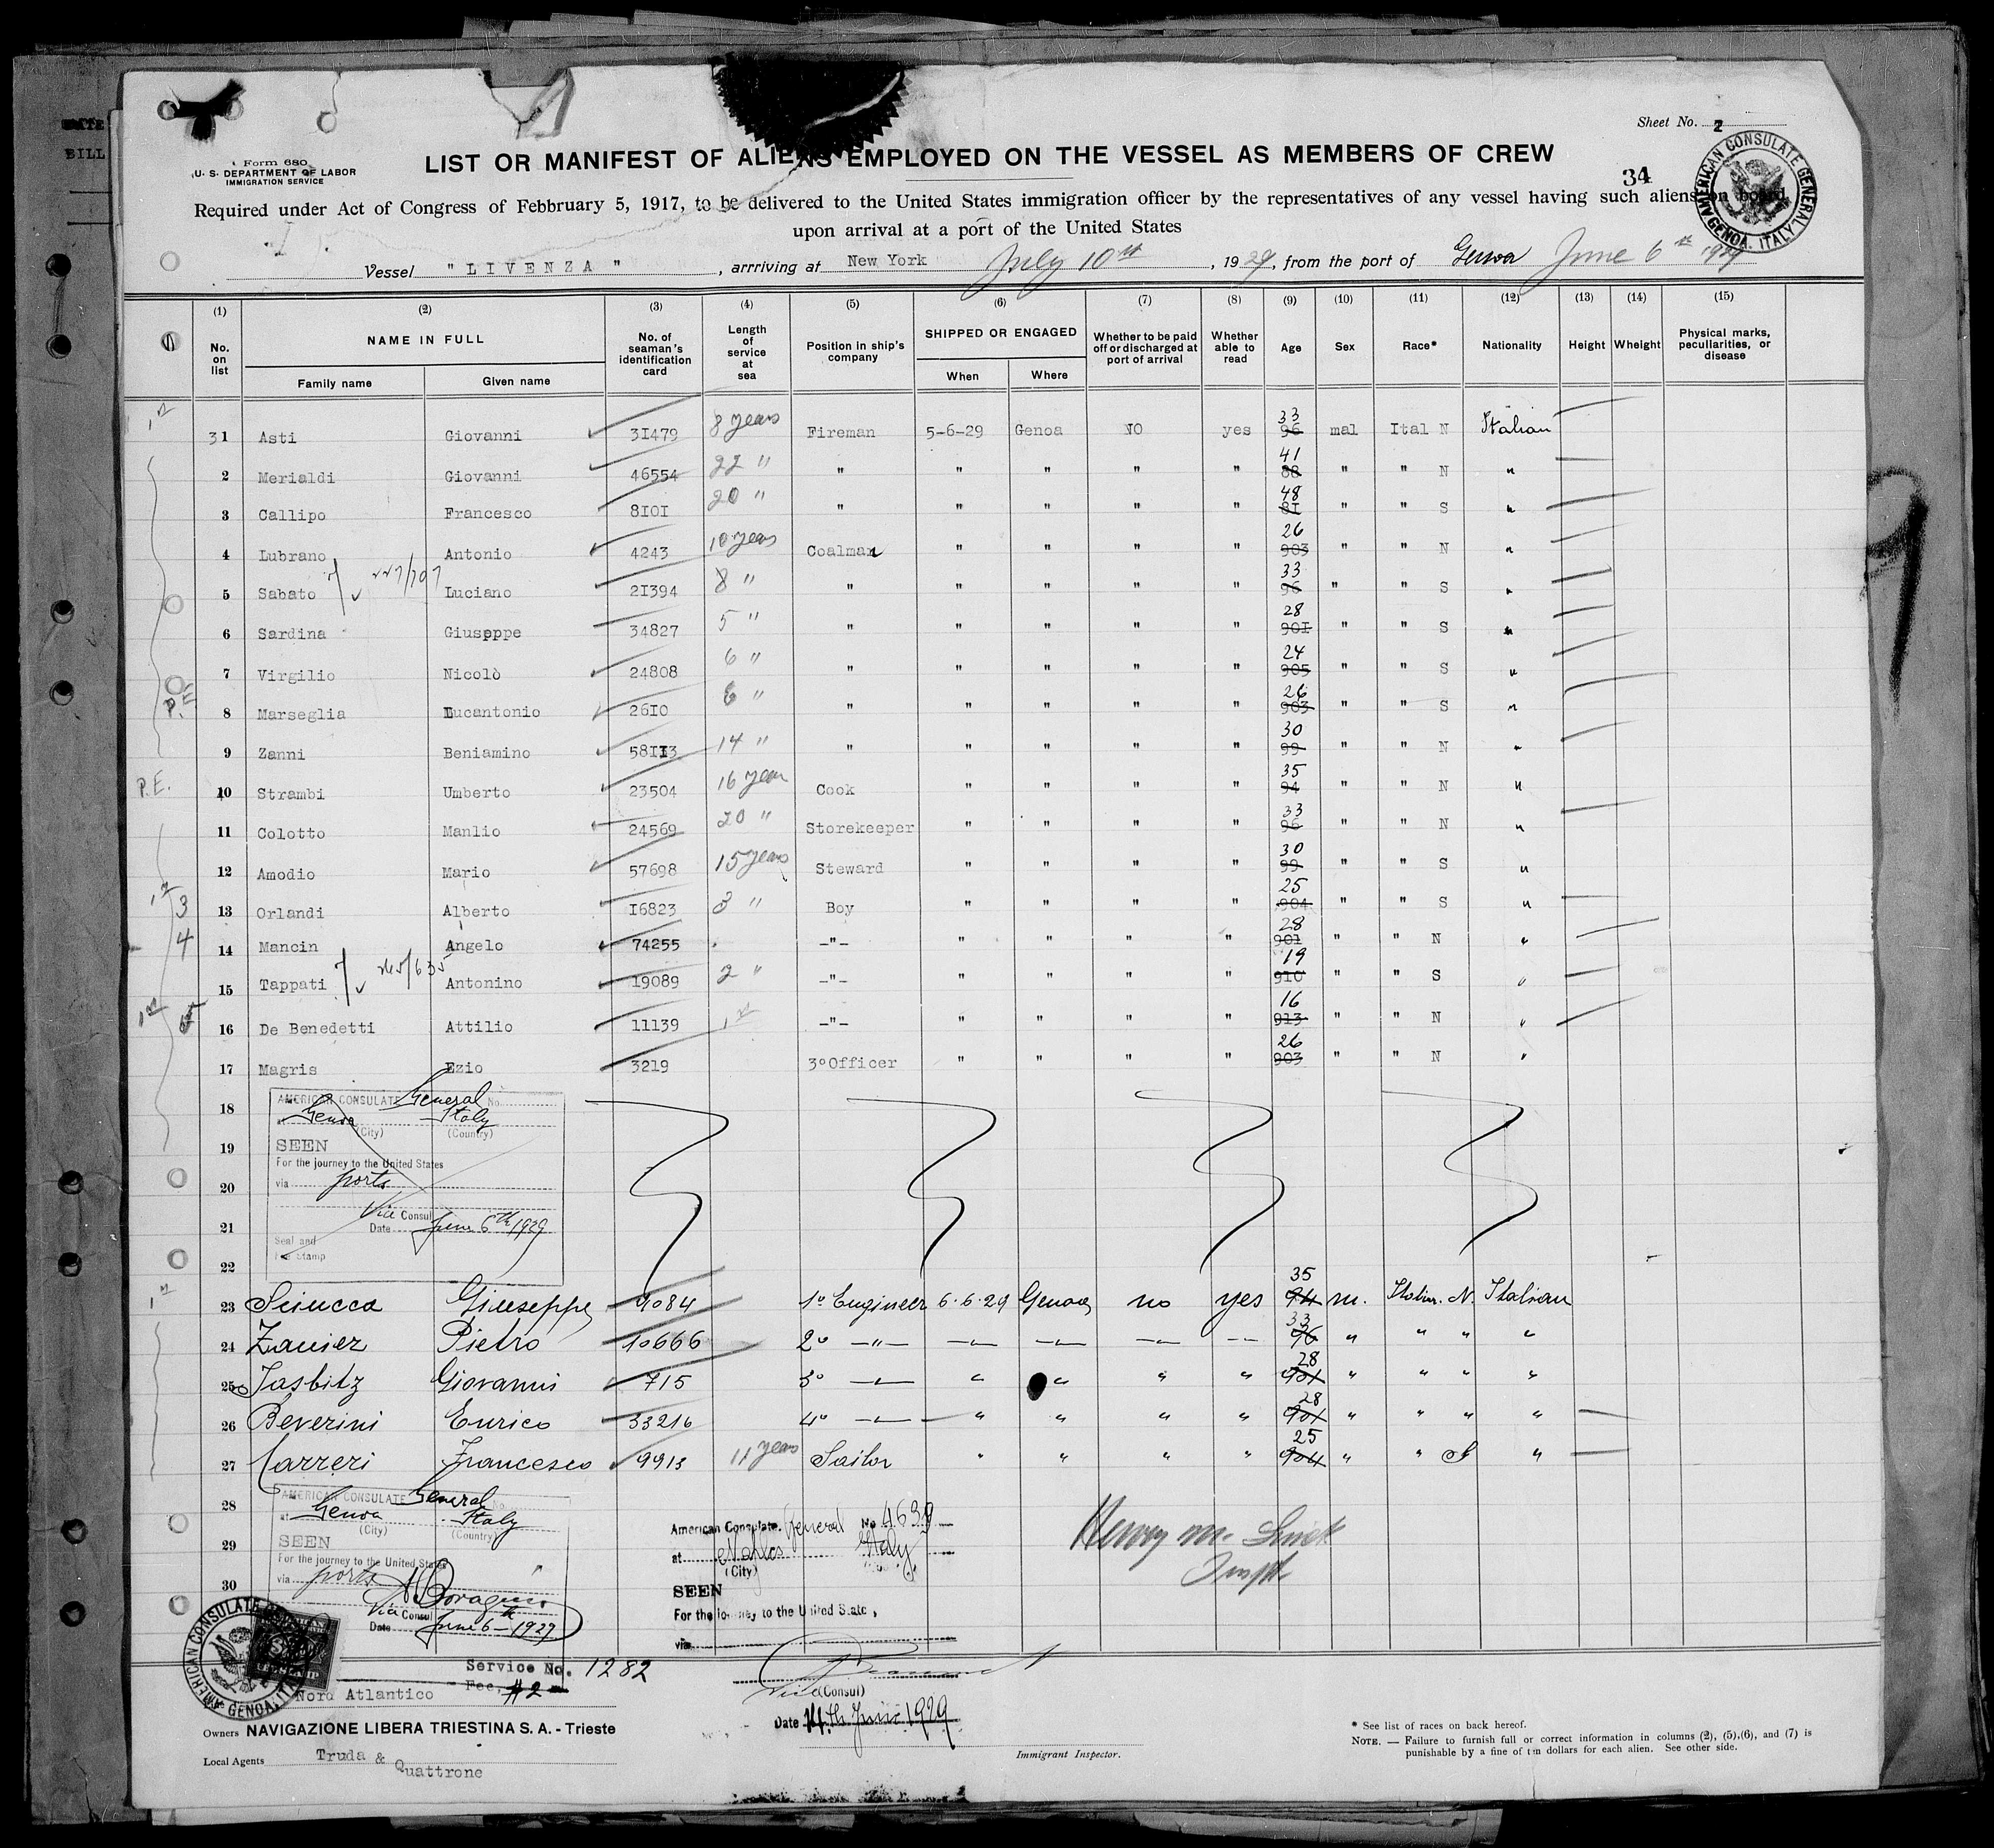 BILL
Sheet No. 2
Form 680
U. S. DEPARTMENT OF LABOR
IMMIGRATION SERVICE
LIST OR MANIFEST OF ALIENS EMPLOYED ON THE VESSEL AS MEMBERS OF CREW
34
AMERICAN CONSULATE GENERAL GENOA, ITALY
Required under Act of Congress of Febbruary 5, 1917, to be delivered to the United States immigration officer by the representatives of any vessel having such aliens on board
upon arrival at a port of the United States
Vessel "LIVENZA", arrriving at New York July 10th, 1929, from the port of Genoa June 6th 1929
(1) (2) (3) (4) (5) (6) (7) (8) (9) (10) (11) (12) (13) (14) (15)
No. on list NAME IN FULL Family name Given name No. of seaman's identification card Length of service at sea Position in ship's company SHIPPED OR ENGAGED When Where Whether to be paid off or discharged at port of arrival Whether able to read Age Sex Race* Nationality Height Wheight Physical marks, peculiarities, or disease
31 Asti Giovanni 31479 8 years Fireman 5-6-29 Genoa NO yes 33 96 mal Ital N Italian
2 Merialdi Giovanni 46554 22 " " " " " " 41 88 " " N "
3 Callipo Francesco 8101 20 " " " " " " 48 81 " " S "
4 Lubrano Antonio 4243 10 years Coalman " " " " 26 903 " " N "
227/707
5 Sabato Luciano 21394 8 " " " " " " 33 96 " " S "
6 Sardina Giuseppe 34827 5 " " " " " " 28 901 " " S "
7 Virgilio Nicolò 24808 6 " " " " " " 24 905 " " S "
8 Marseglia Lucantonio 2610 6 " " " " " " 26 903 " " S "
P.E.
9 Zanni Beniamino 58113 14 " " " " " " 30 99 " " N "
P.E. 10 Strambi Umberto 23504 16 year Cook " " " " 35 94 " " N "
11 Colotto Manlio 24569 20 " Storekeeper " " " " 33 96 " " N "
12 Amodio Mario 57698 15 years Steward " " " " 30 99 " " S "
3 13 Orlandi Alberto 16823 3 " Boy " " " " 25 904 " " S "
4 14 Mancin Angelo 74255 -"- " " " " 28 901 " " N "
265/635
15 Tappati Antonino 19089 2 " -"- " " " " 19 910 " " S "
16 De Benedetti Attilio 11139 -"- " " " " 16 913 " " N "
17 Magris Ezio 3219 3o Officer " " " " 26 903 " " N "
18
AMERICAN CONSULATE General No.
at Genoa Italy
(City) (Country)
19
SEEN
For the journey to the United States
20
via ports
21
Vice Consul
Date June 6th 1929
Seal and
Fee Stamp
22
23 Sciucca Giuseppe 9084 1o Engineer 6-6-29 Genoa no yes 35 94 m. Italian. N. Italian
24 Zanier Pietro 10666 2o -"- 33 96 " " " "
25 Jasbitz Giovanni 715 3o " " " " 28 901 " " " "
26 Beverini Enrico 33216 4o " " " " 28 901 " " " "
27 Carreri Francesco 9913 11 years Sailor " " " " 25 904 " " S "
28
29
30
AMERICAN CONSULATE General No.
at Genoa Italy
(City) (Country)
SEEN
For the journey to the United States
via ports
Vice Consul
Date June 6th 1929
American Consulate General No 4639
at Naples Italy
(City)
SEEN
For the journey to the United States,
via
Vice (Consul)
Date 14th June 1929
Henry M.
Insp.
AMERICAN CONSULATE GENERAL GENOA, ITALY
Service No. 1282
Fee, #2
Nord Atlantico
Owners NAVIGAZIONE LIBERA TRIESTINA S. A. - Trieste
Local Agents Truda & Quattrone
Immigrant Inspector.
* See list of races on back hereof.
NOTE. — Failure to furnish full or correct information in columns (2), (5),(6), and (7) is
punishable by a fine of ten dollars for each alien. See other side.